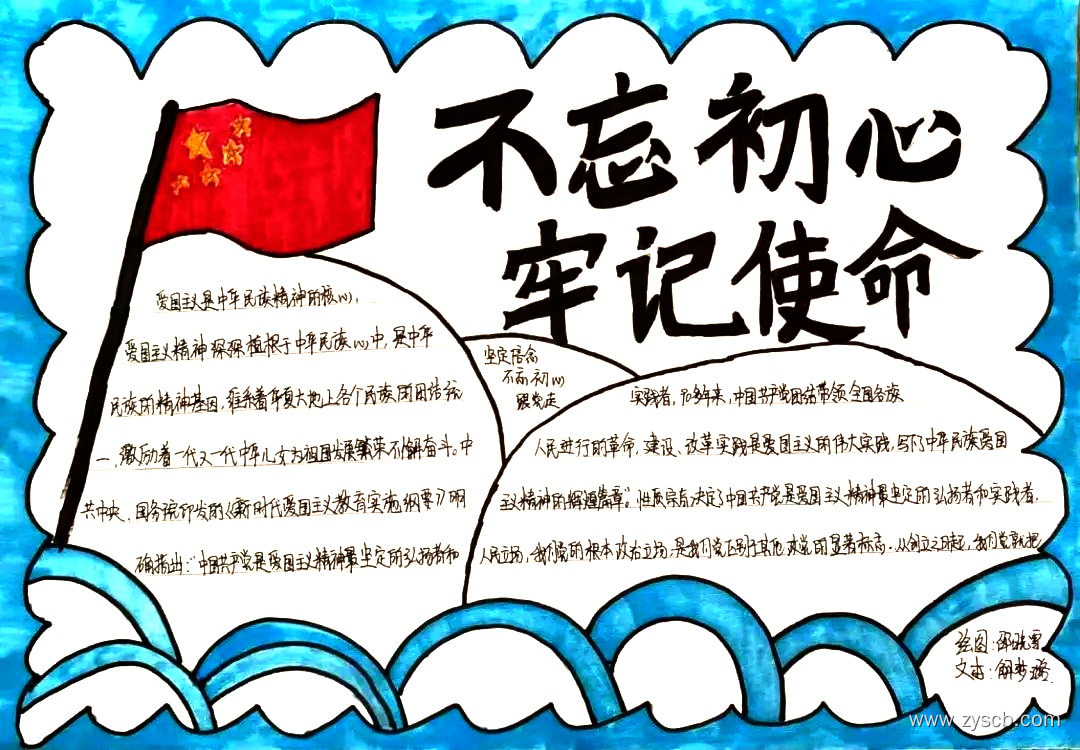 不忘初心
牢记使命
爱国主义是中华民族精神的核心，
爱国主义精神深深植根于中华民族心中，是中华
民族的精神基因，维系着华夏大地上各个民族的团结统
一，激励着一代又一代中华儿女为祖国发展繁荣不懈奋斗。中
共中央、国务院印发的《新时代爱国主义教育实施纲要》明
确指出：“中国共产党是爱国主义精神最坚定的弘扬者和
坚定信念
不忘初心
跟党走
实践者，90多年来，中国共产党团结带领全国各族
人民进行的革命、建设、改革实践是爱国主义的伟大实践，写下了中华民族爱国
主义精神的辉煌篇章。”性质宗旨决定了中国共产党是爱国主义精神最坚定的弘扬者和实践者。
人民立场，我们党的根本政治立场，是我们党区别于其他政党的显著标志。从创立之日起，我们党就把
绘图：邵晓
文字：解梦
www.zyscb.com